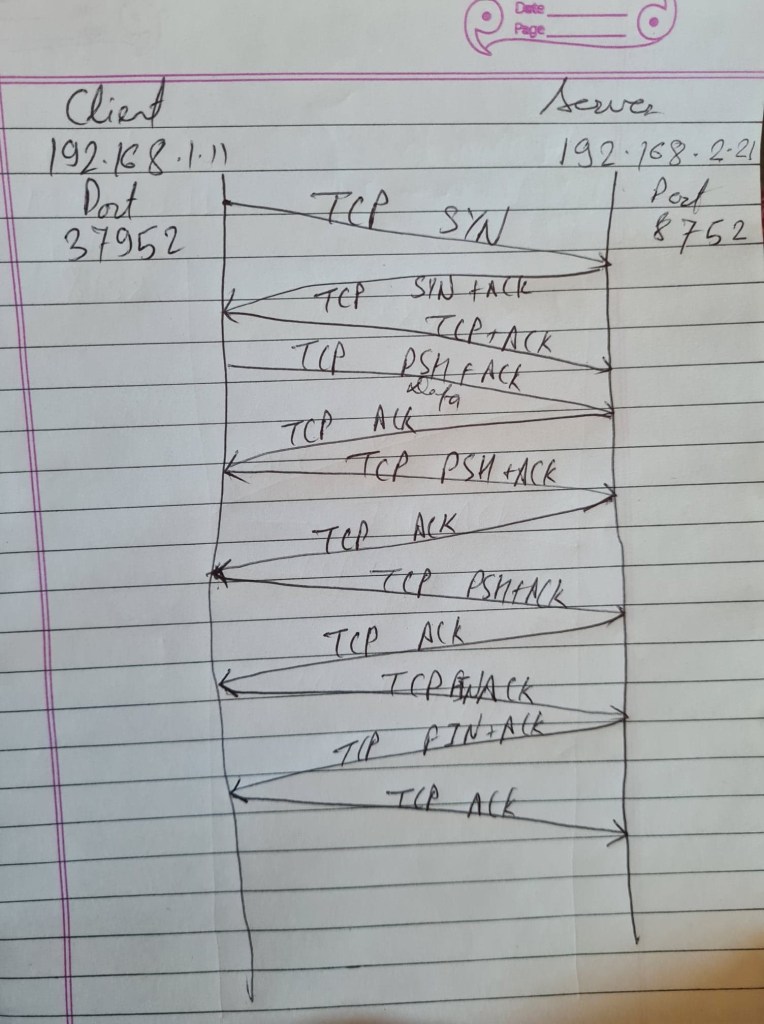 Date
Page
Client Server
192.168.1.11 192.168.2.21
Port Port
37952 8752
TCP SYN
TCP SYN +ACK
TCP+ACK
TCP PSH+ACK
Data
TCP ACK
TCP PSH+ACK
TCP ACK
TCP PSH+ACK
TCP ACK
TCP FIN/ACK
TCP FIN+ACK
TCP ACK